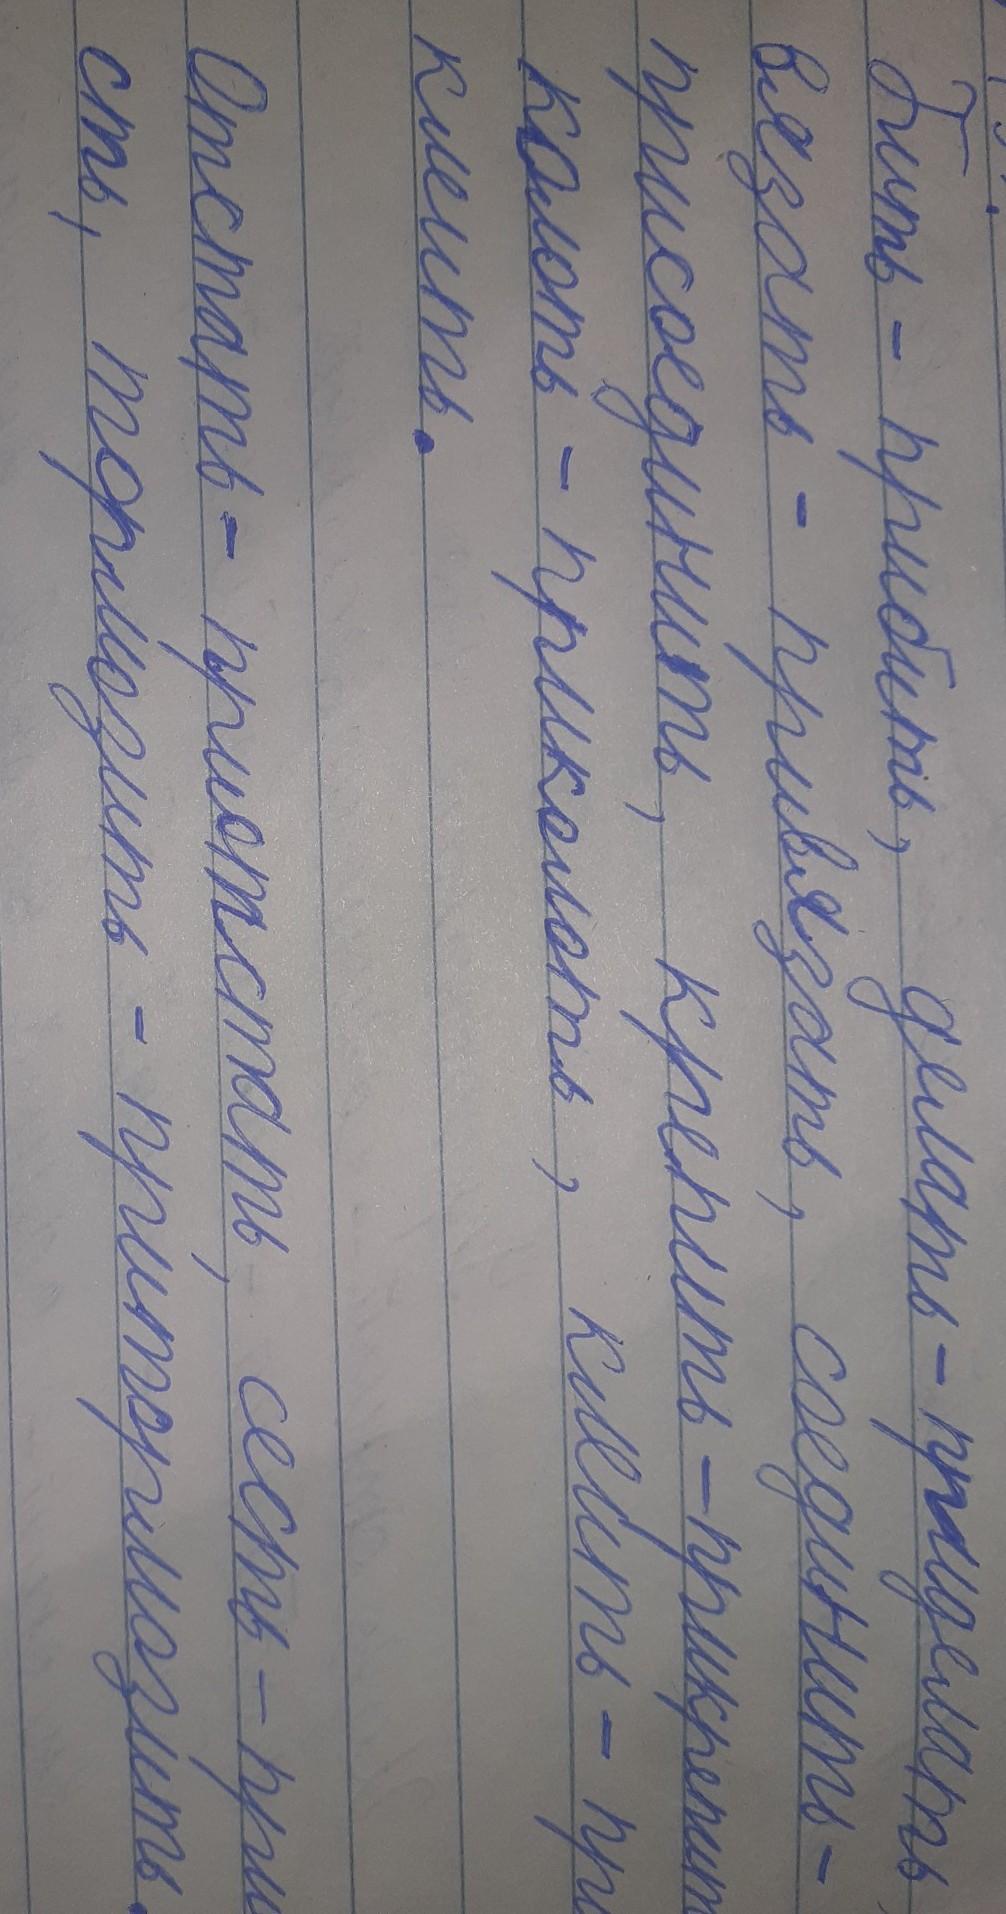 Бить - прибить, делать - приделать
вязать - привязать, соединить -
присоединить, крепить - прикрепит
колоть - приколоть, клеить - при
клеить.
Отстать - приотстать, сесть - при
сть, тормозить - притормозить.